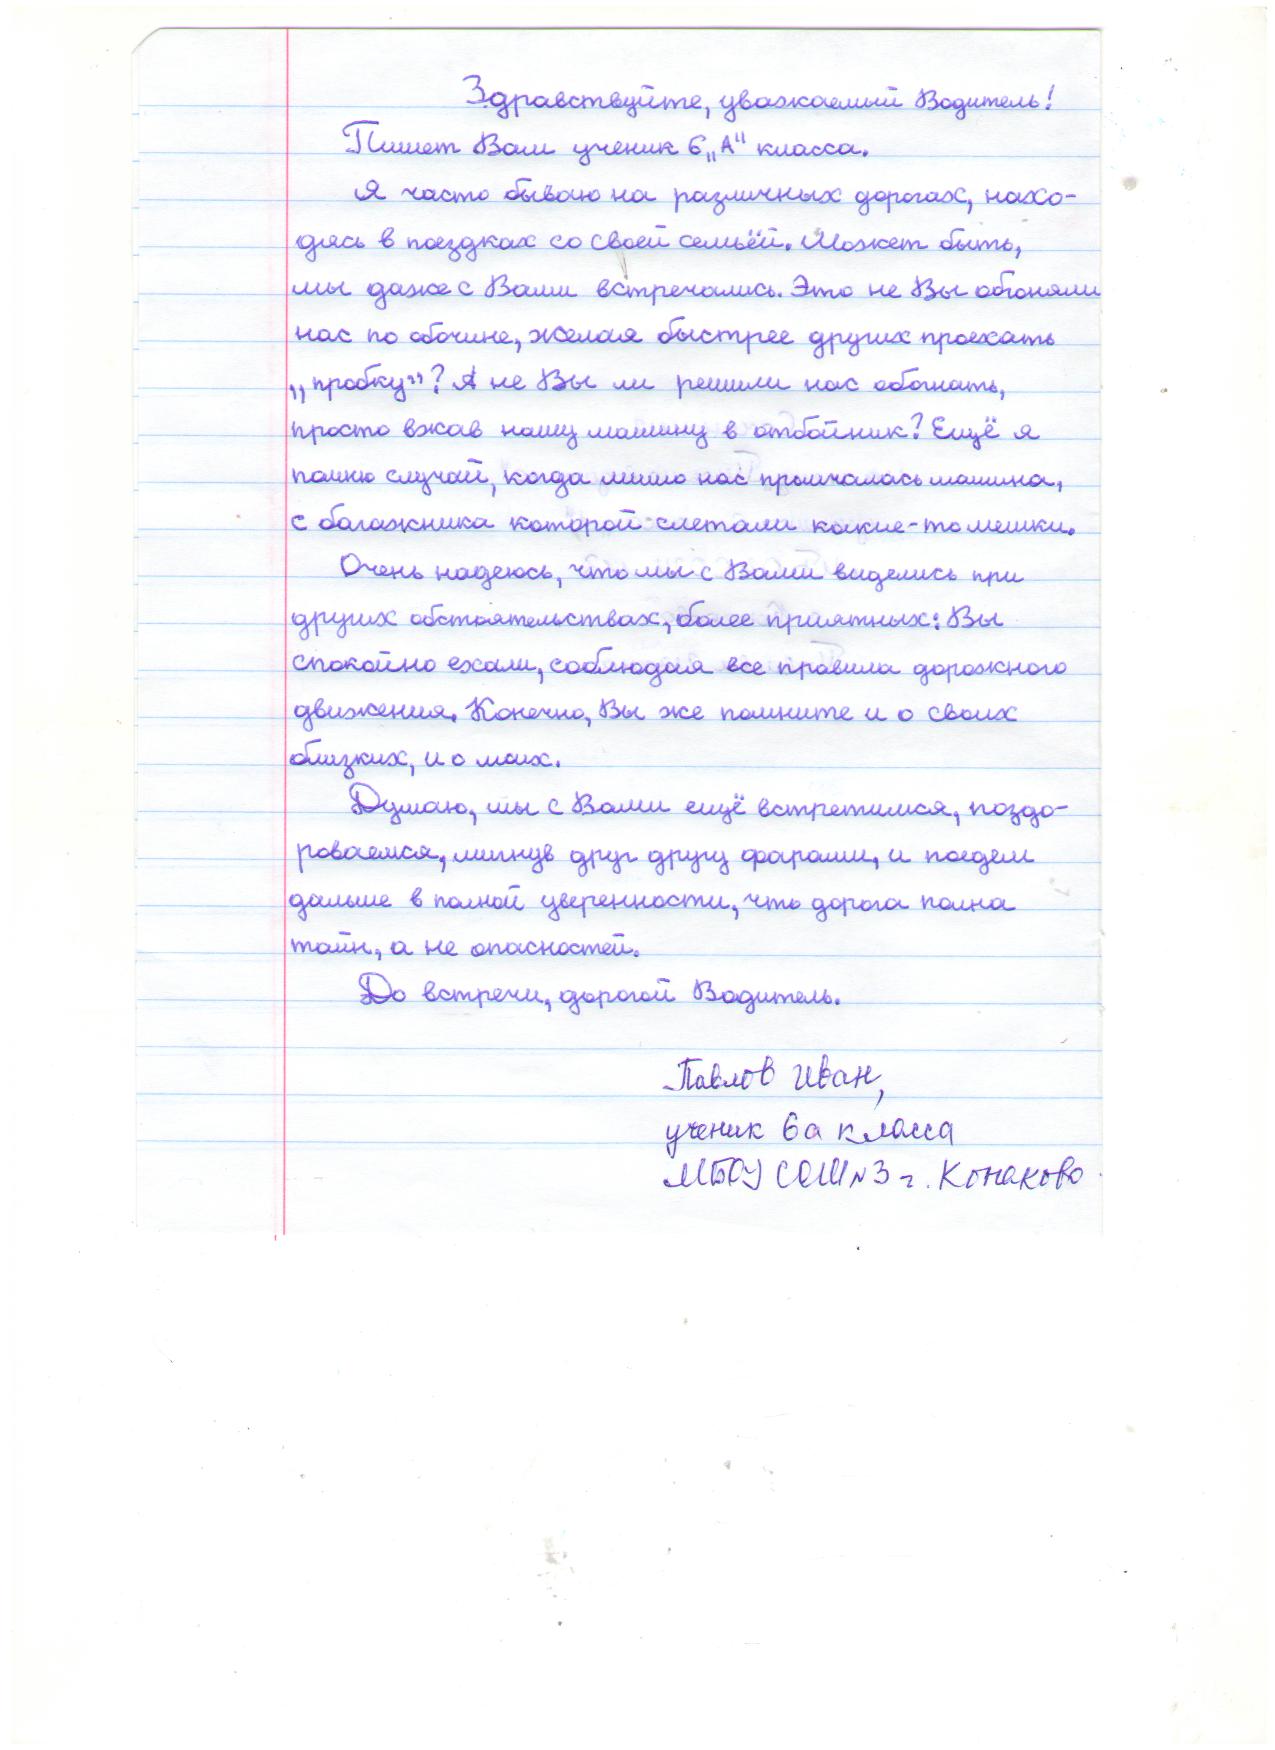 Здравствуйте, уважаемый Водитель!
Пишет Вам ученик 6 „А" класса.
Я часто бываю на различных дорогах, нахо-
дясь в поездках со своей семьёй. Может быть,
мы даже с Вами встречались. Это не Вы обгоняли
нас по обочине, желая быстрее других проехать
„пробку"? А не Вы ли решили нас обогнать,
просто вжав нашу машину в отбойник? Ещё я
помню случай, когда мимо нас промчалась машина,
с багажника которой слетали какие-то мешки.
Очень надеюсь, что мы с Вами виделись при
других обстоятельствах, более приятных: Вы
спокойно ехали, соблюдая все правила дорожного
движения. Конечно, Вы же помните и о своих
близких, и о моих.
Думаю, мы с Вами ещё встретимся, поздо-
роваемся, мигнув друг другу фарами, и поедем
дальше в полной уверенности, что дорога полна
тайн, а не опасностей.
До встречи, дорогой Водитель.
Павлов Иван,
ученик 6а класса
МБОУ СОШ №3 г. Конаково